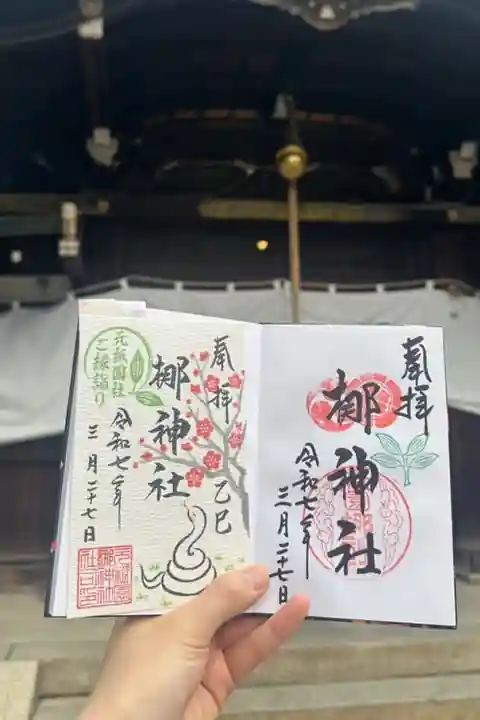 奉拝
梛神社
令和七年
三月二十七日
奉拝
乙巳
梛神社
元祇園社
ご縁詣り
令和七年
三月二十七日